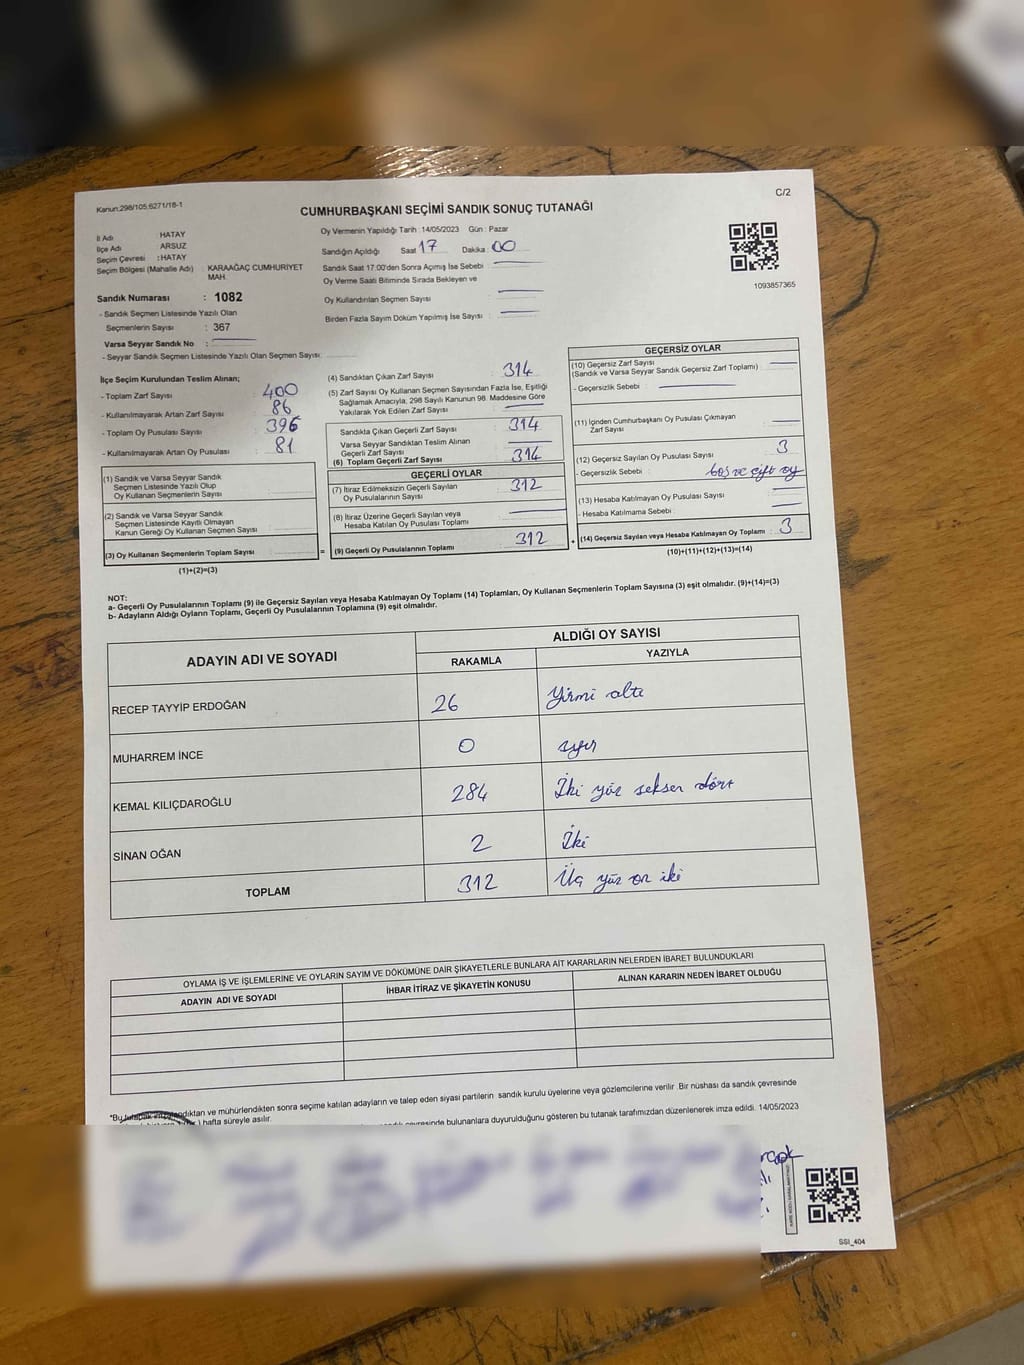 Kanun:298/105;6271/18-1
C/2
CUMHURBAŞKANI SEÇİMİ SANDIK SONUÇ TUTANAĞI
İl Adı HATAY
İlçe Adı ARSUZ
Seçim Çevresi : HATAY
Seçim Bölgesi (Mahalle Adı) : KARAAĞAÇ CUMHURİYET
MAH.
Sandık Numarası : 1082
- Sandık Seçmen Listesinde Yazılı Olan
Seçmenlerin Sayısı : 367
Varsa Seyyar Sandık No :
- Seyyar Sandık Seçmen Listesinde Yazılı Olan Seçmen Sayısı:
Oy Vermenin Yapıldığı Tarih : 14/05/2023 Gün : Pazar
Sandığın Açıldığı Saat 17 Dakika : 00
Sandık Saat 17:00'den Sonra Açımış İse Sebebi
Oy Verme Saati Bitiminde Sırada Bekleyen ve
Oy Kullandırılan Seçmen Sayısı
Birden Fazla Sayım Döküm Yapılmış İse Sayısı :
1093857365
İlçe Seçim Kurulundan Teslim Alınan;
- Toplam Zarf Sayısı : 400
- Kullanılmayarak Artan Zarf Sayısı : 86
- Toplam Oy Pusulası Sayısı : 396
- Kullanılmayarak Artan Oy Pusulası : 81
(1) Sandık ve Varsa Seyyar Sandık
Seçmen Listesinde Yazılı Olup
Oy Kullanan Seçmenlerin Sayısı :
(2) Sandık ve Varsa Seyyar Sandık
Seçmen Listesinde Kayıtlı Olmayan
Kanun Gereği Oy Kullanan Seçmen Sayısı :
(3) Oy Kullanan Seçmenlerin Toplam Sayısı :
(1)+(2)=(3)
(4) Sandıktan Çıkan Zarf Sayısı : 314
(5) Zarf Sayısı Oy Kullanan Seçmen Sayısından Fazla İse, Eşitliği
Sağlamak Amacıyla, 298 Sayılı Kanunun 98. Maddesine Göre
Yakılarak Yok Edilen Zarf Sayısı :
Sandıkta Çıkan Geçerli Zarf Sayısı : 314
Varsa Seyyar Sandıktan Teslim Alınan
Geçerli Zarf Sayısı :
(6) Toplam Geçerli Zarf Sayısı : 314
GEÇERLİ OYLAR
(7) İtiraz Edilmeksizin Geçerli Sayılan
Oy Pusulalarının Sayısı : 312
(8) İtiraz Üzerine Geçerli Sayılan veya
Hesaba Katılan Oy Pusulası Toplamı :
= (9) Geçerli Oy Pusulalarının Toplamı : 312
GEÇERSİZ OYLAR
(10) Geçersiz Zarf Sayısı :
(Sandık ve Varsa Seyyar Sandık Geçersiz Zarf Toplamı)
- Geçersizlik Sebebi :
(11) İçinden Cumhurbaşkanı Oy Pusulası Çıkmayan
Zarf Sayısı :
(12) Geçersiz Sayılan Oy Pusulası Sayısı : 3
- Geçersizlik Sebebi : boş ve çift oy
(13) Hesaba Katılmayan Oy Pusulası Sayısı :
- Hesaba Katılmama Sebebi :
+ (14) Geçersiz Sayılan veya Hesaba Katılmayan Oy Toplamı : 3
(10)+(11)+(12)+(13)=(14)
NOT:
a- Geçerli Oy Pusulalarının Toplamı (9) ile Geçersiz Sayılan veya Hesaba Katılmayan Oy Toplamı (14) Toplamları, Oy Kullanan Seçmenlerin Toplam Sayısına (3) eşit olmalıdır. (9)+(14)=(3)
b- Adayların Aldığı Oyların Toplamı, Geçerli Oy Pusulalarının Toplamına (9) eşit olmalıdır.
ADAYIN ADI VE SOYADI
ALDIĞI OY SAYISI
RAKAMLA YAZIYLA
RECEP TAYYİP ERDOĞAN 26 Yirmi altı
MUHARREM İNCE 0 sıfır
KEMAL KILIÇDAROĞLU 284 İki yüz seksen dört
SİNAN OĞAN 2 İki
TOPLAM 312 Üç yüz on iki
OYLAMA İŞ VE İŞLEMLERİNE VE OYLARIN SAYIM VE DÖKÜMÜNE DAİR ŞİKAYETLERLE BUNLARA AİT KARARLARIN NELERDEN İBARET BULUNDUKLARI
ADAYIN ADI VE SOYADI İHBAR İTİRAZ VE ŞİKAYETİN KONUSU ALINAN KARARIN NEDEN İBARET OLDUĞU
*Bu tutanak imzalandıktan ve mühürlendikten sonra seçime katılan adayların ve talep eden siyasi partilerin sandık kurulu üyelerine veya gözlemcilerine verilir .Bir nüshası da sandık çevresinde
) hafta süreyle asılır.
çevresinde bulunanlara duyurulduğunu gösteren bu tutanak tarafımızdan düzenlenerek imza edildi. 14/05/2023
SSI_404